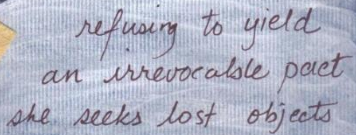 refusing to yield
an irrevocable pact
she seeks lost objects